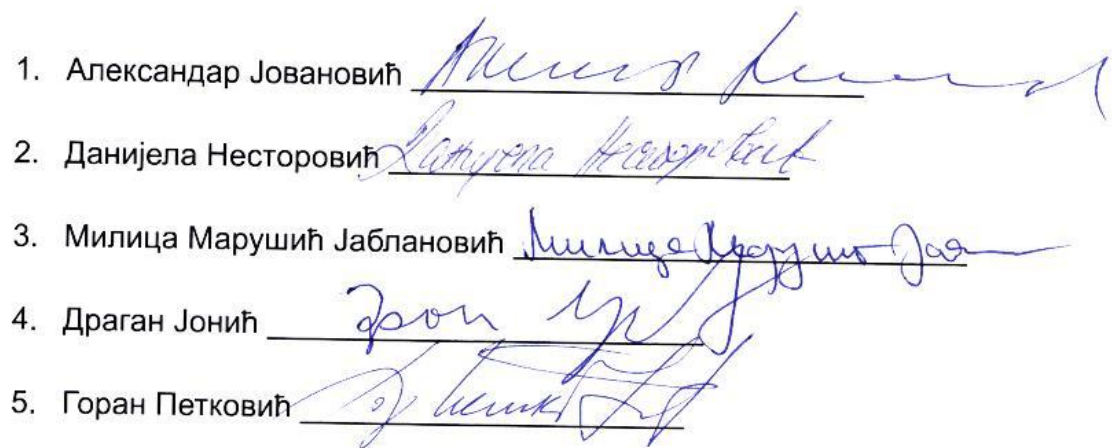 1. Александар Јовановић
2. Данијела Несторовић Данијела Несторовић
3. Милица Марушић Јаблановић Милица Марушић Јаб
4. Драган Јонић
5. Горан Петковић